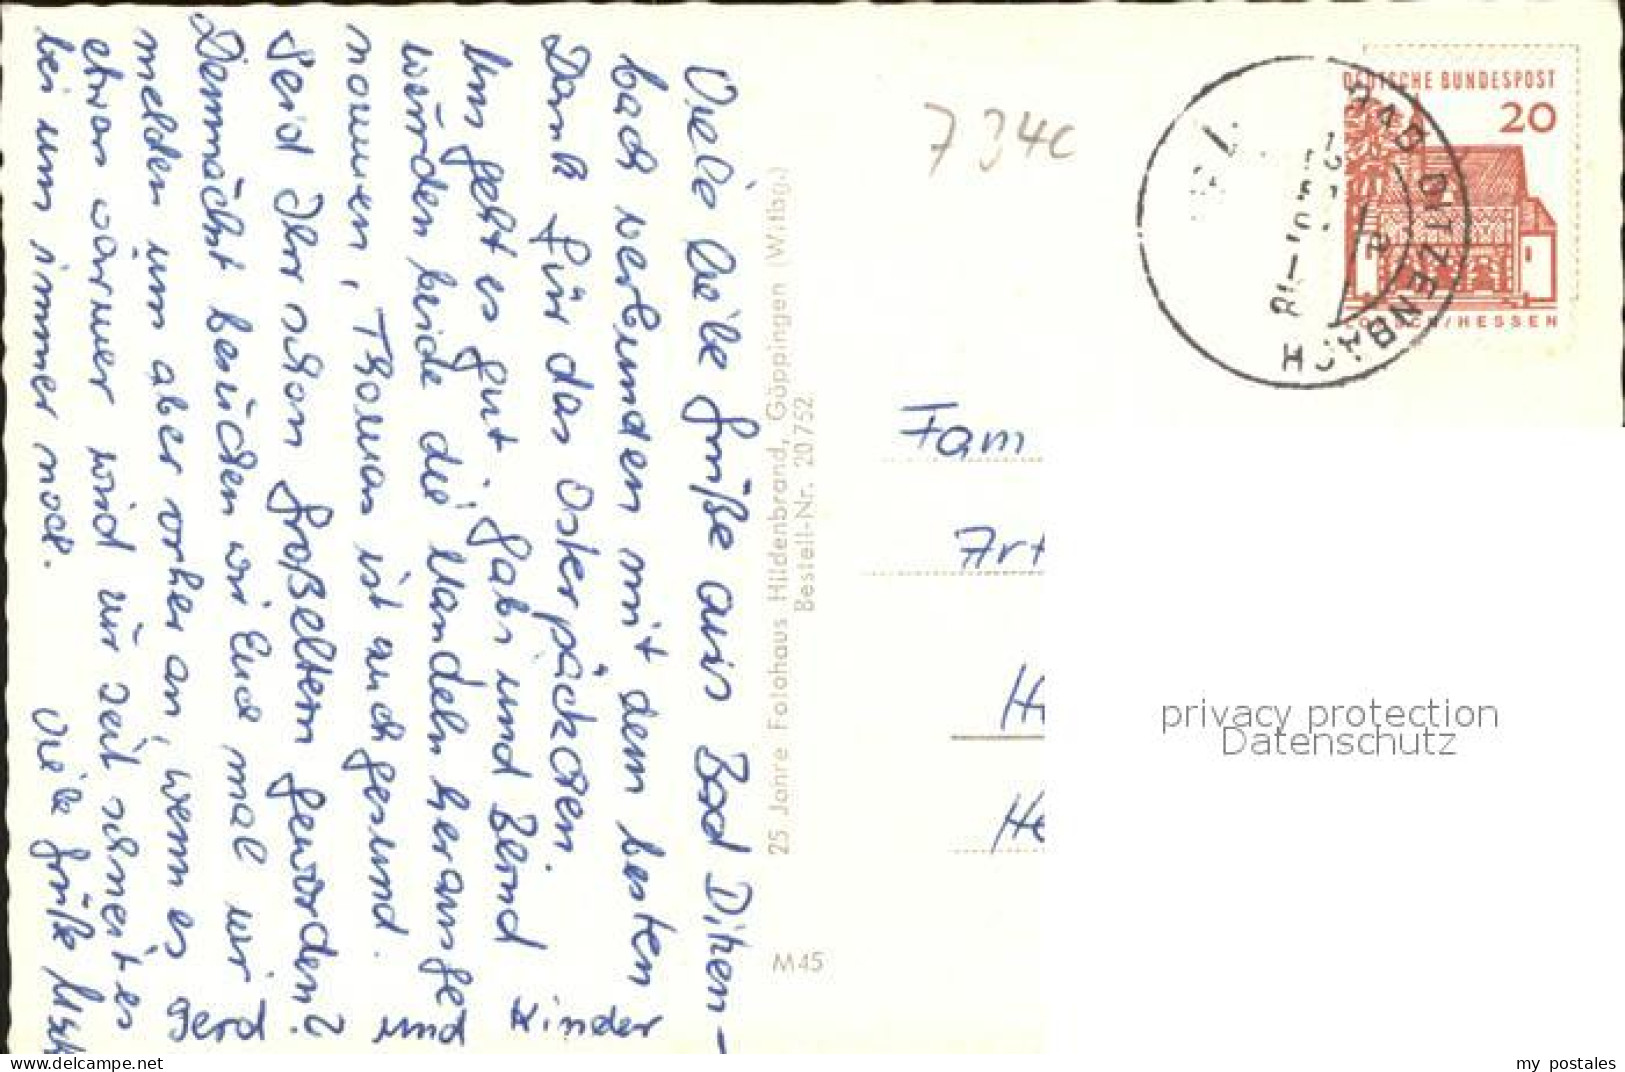 Viele liebe Grüße aus Bad Ditzen-
bach verbunden mit dem besten
Dank für das Osterpäckchen.
Uns geht es gut. Gabi und Bernd
wurden beide die Mandeln herausge
nommen, Thomas ist auch gesund.
Seid Ihr schon Großeltern geworden?
Demnächst besuchen wir Euch mal wir
melden uns aber vorher an, wenn es
etwas warmer wird zur Zeit schneit es
bei uns immer noch.
Viele Grüße
Gerd
und
Kinder
25 Jahre Fotohaus Hildenbrand, Göppingen (Wttbg.)
Bestell-Nr. 20752
M45
734c
DEUTSCHE BUNDESPOST
20
LORSCH/HESSEN
BAD DITZENBACH
a
-18
Fam
Art
H
He
privacy protection
Datenschutz
delcampe.net
my_postales